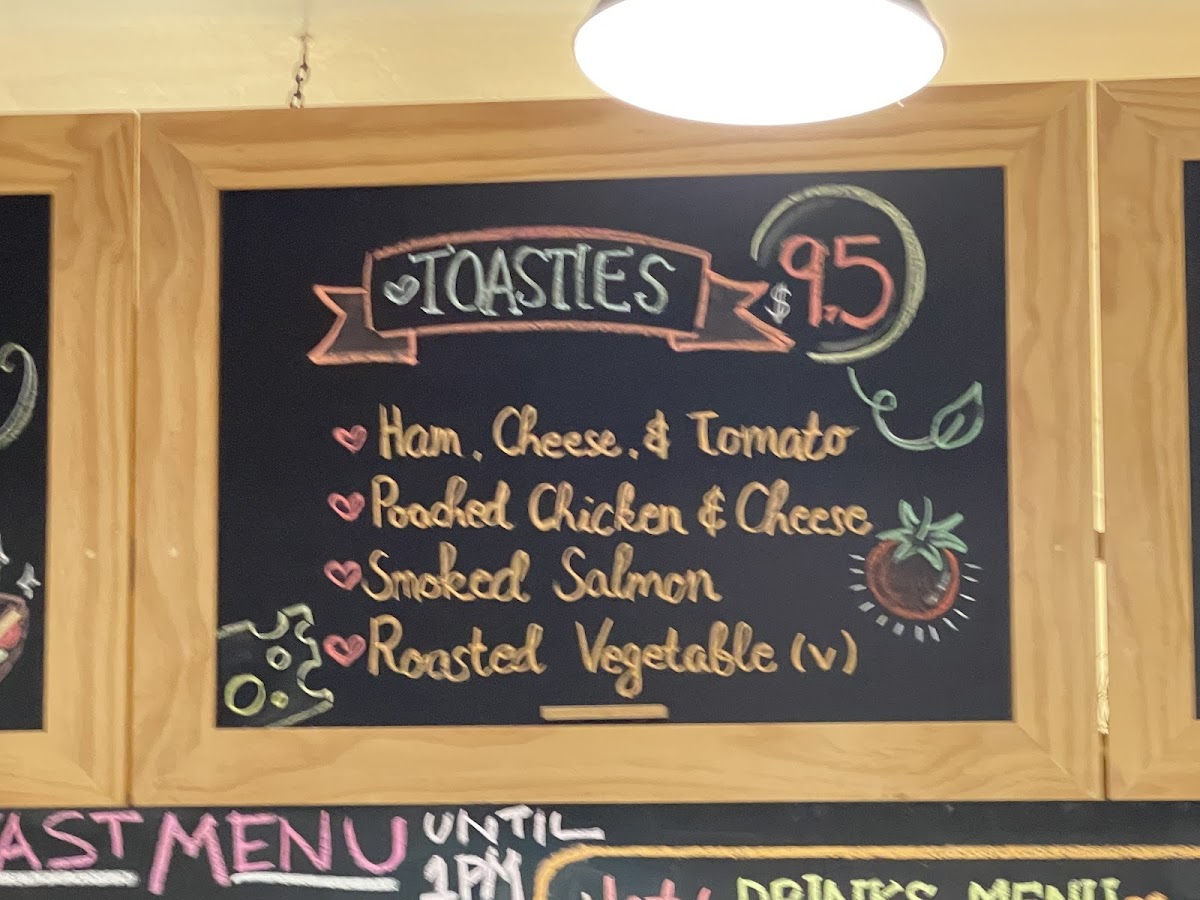 TOASTIES $9.5
Ham, Cheese, & Tomato
Poached Chicken & Cheese
Smoked Salmon
Roasted Vegetable (v)
AST MENU UNTIL
1PM
DRINKS MENU